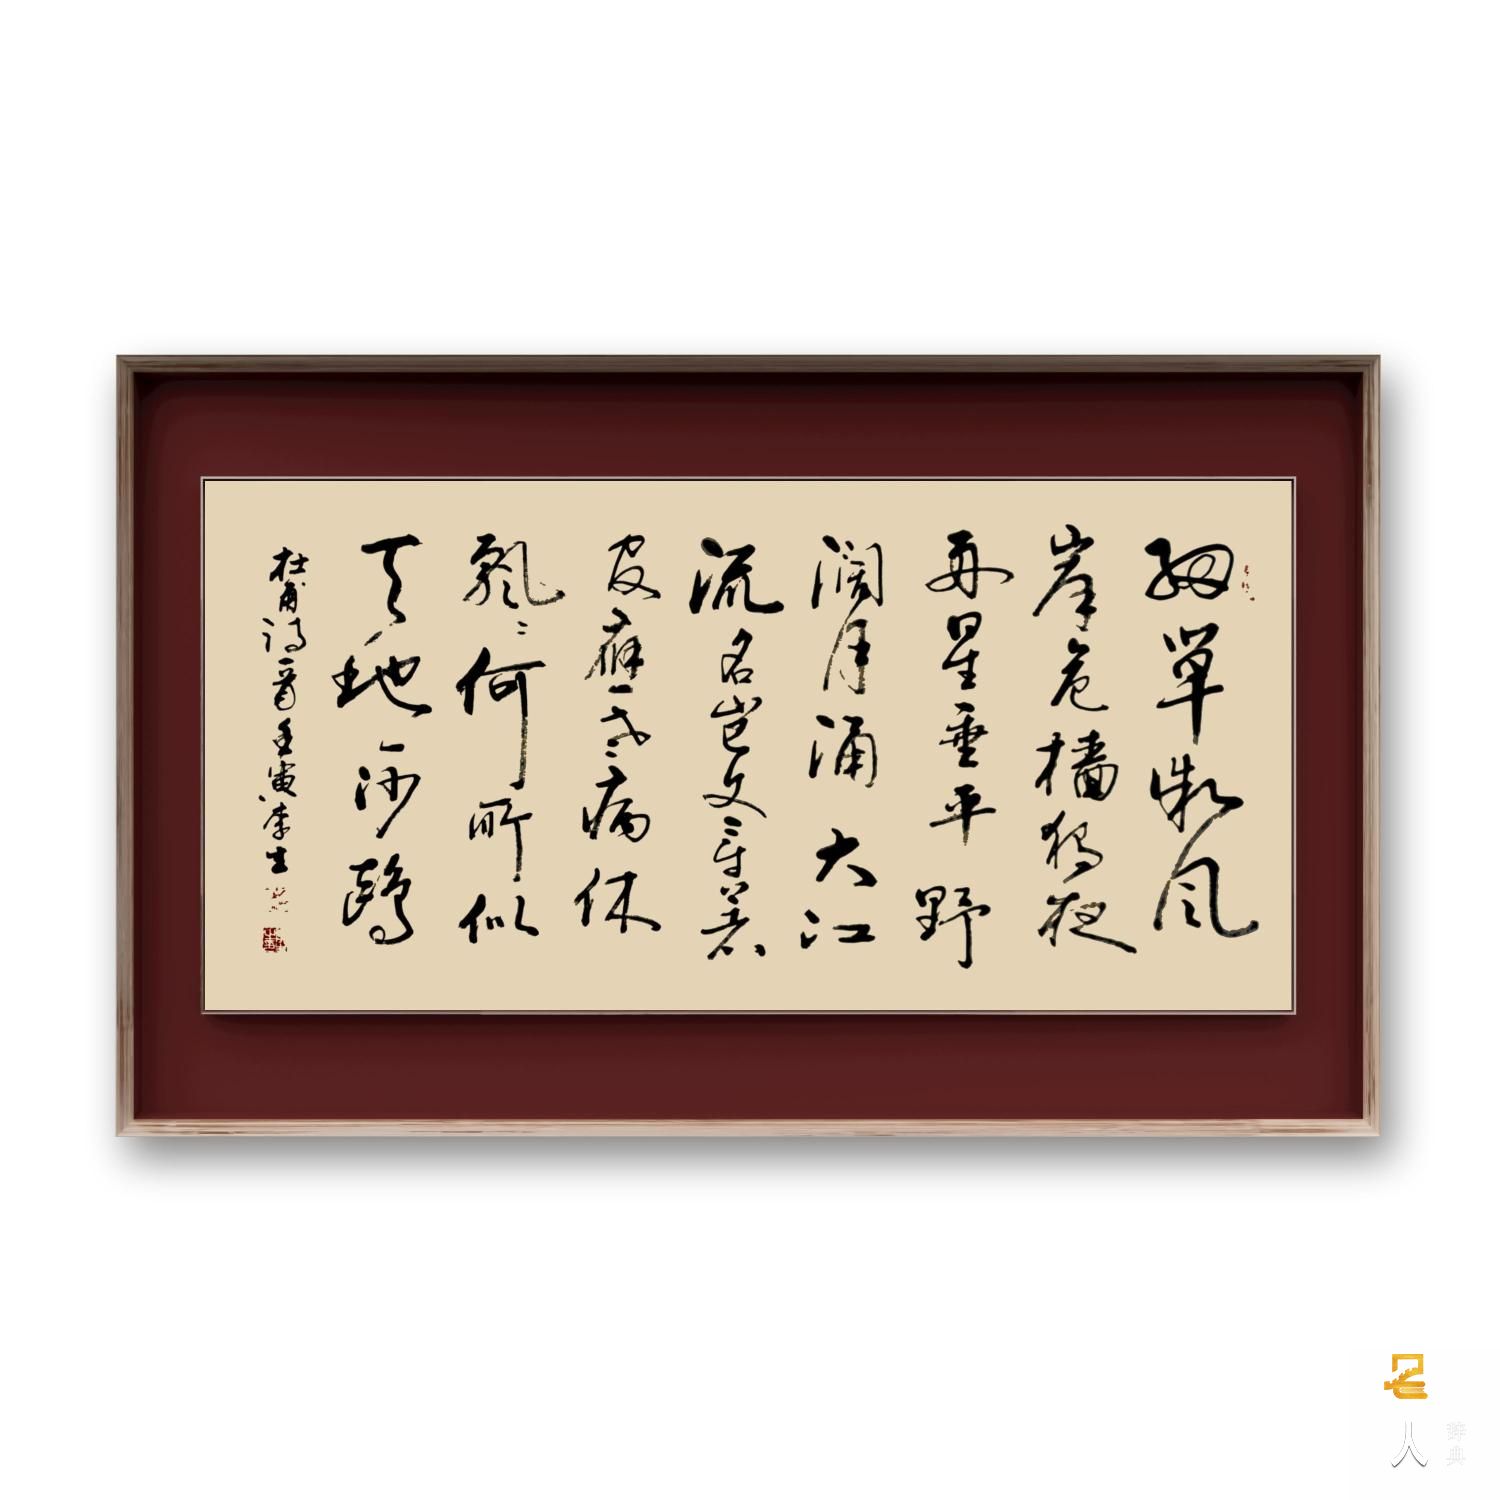 細草微风
岸危檣獨夜
舟星垂平野
阔月涌大江
流名岂文章著
官應老病休
飘〻何所似
天地一沙鷗
杜甫詩一首壬寅李生
名人
辞典